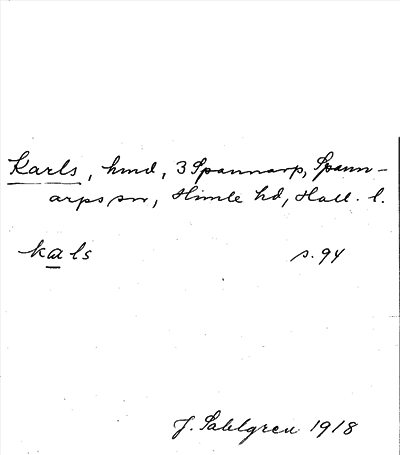 Karls, hmd, 3 Spannarp, Spann-
arps sn, Himle hd, Hall. l.
kals s. 94
J. Sahlgren 1918